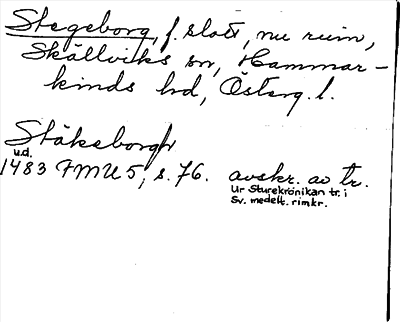 Stegeborg, f. slott, nu ruin,
Skällviks sn, Hammar-
kinds hd, Österg. l.
Stäkeborgh
u.d.
1483 FMU 5, s. 76. avskr. av tr.
Ur Sturekrönikan tr. i
Sv. medelt. rimkr.